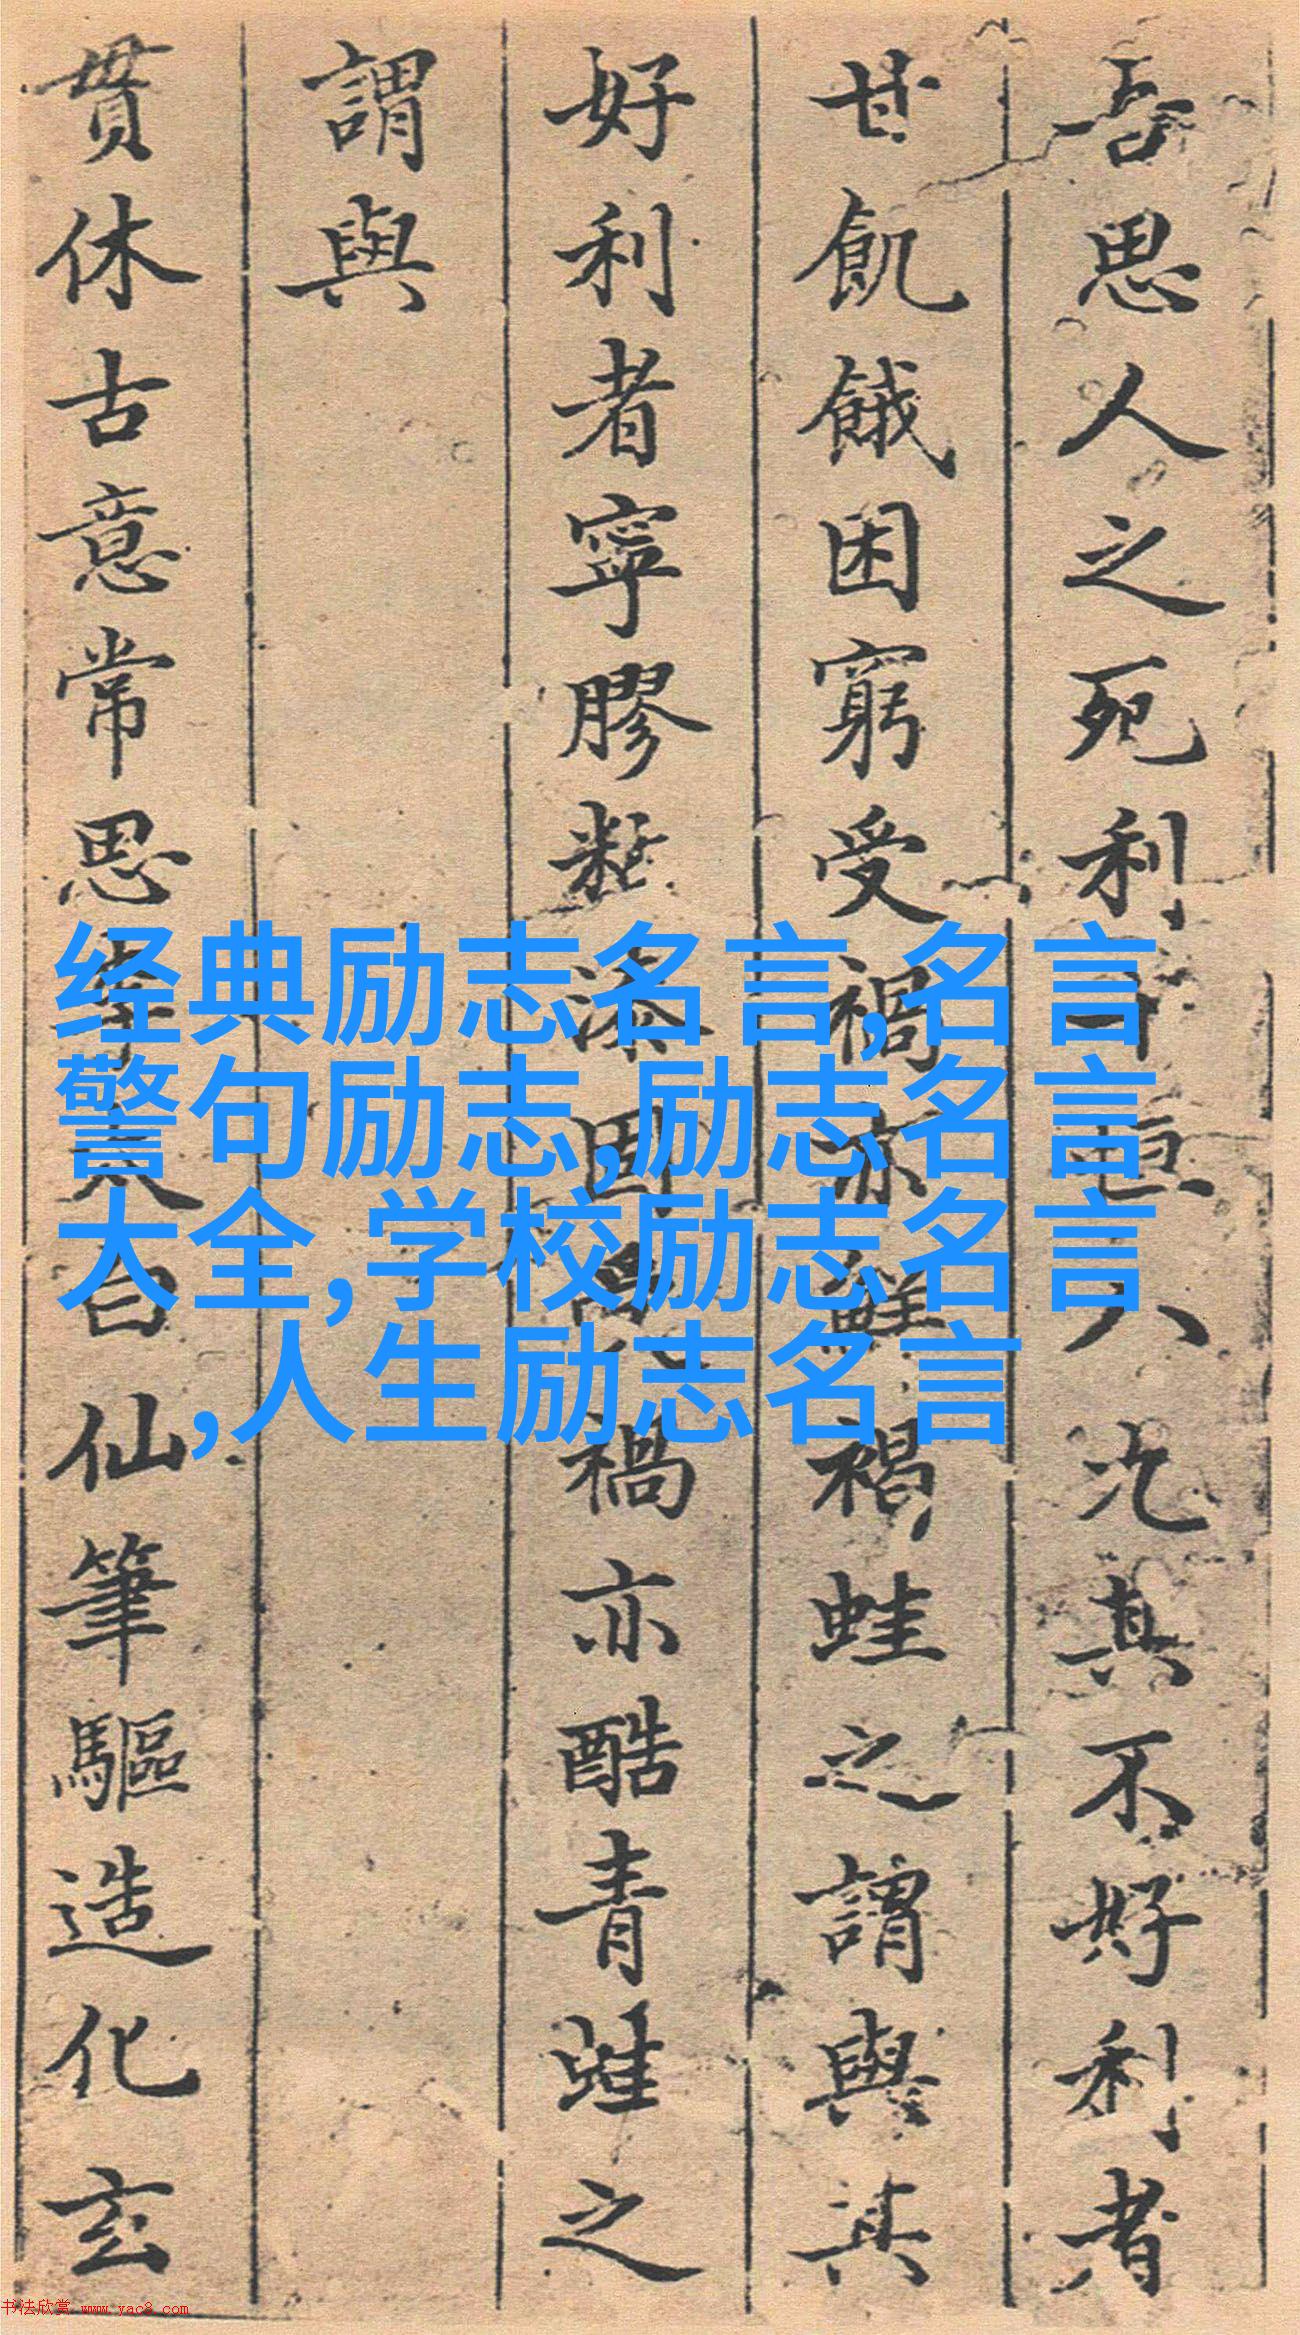 吾思人之死利十恒八其不好利者
甘飢餓困窮受禍亦鮮禍蛙之謂與其
好利者寧膠漆固禍亦酷青蛙之
謂與
貫休古意常思李太白仙筆驅造化玄
经典励志名言,名言
警句励志,励志名言
大全,学校励志名言
,人生励志名言
书法欣赏 www.yac8.com